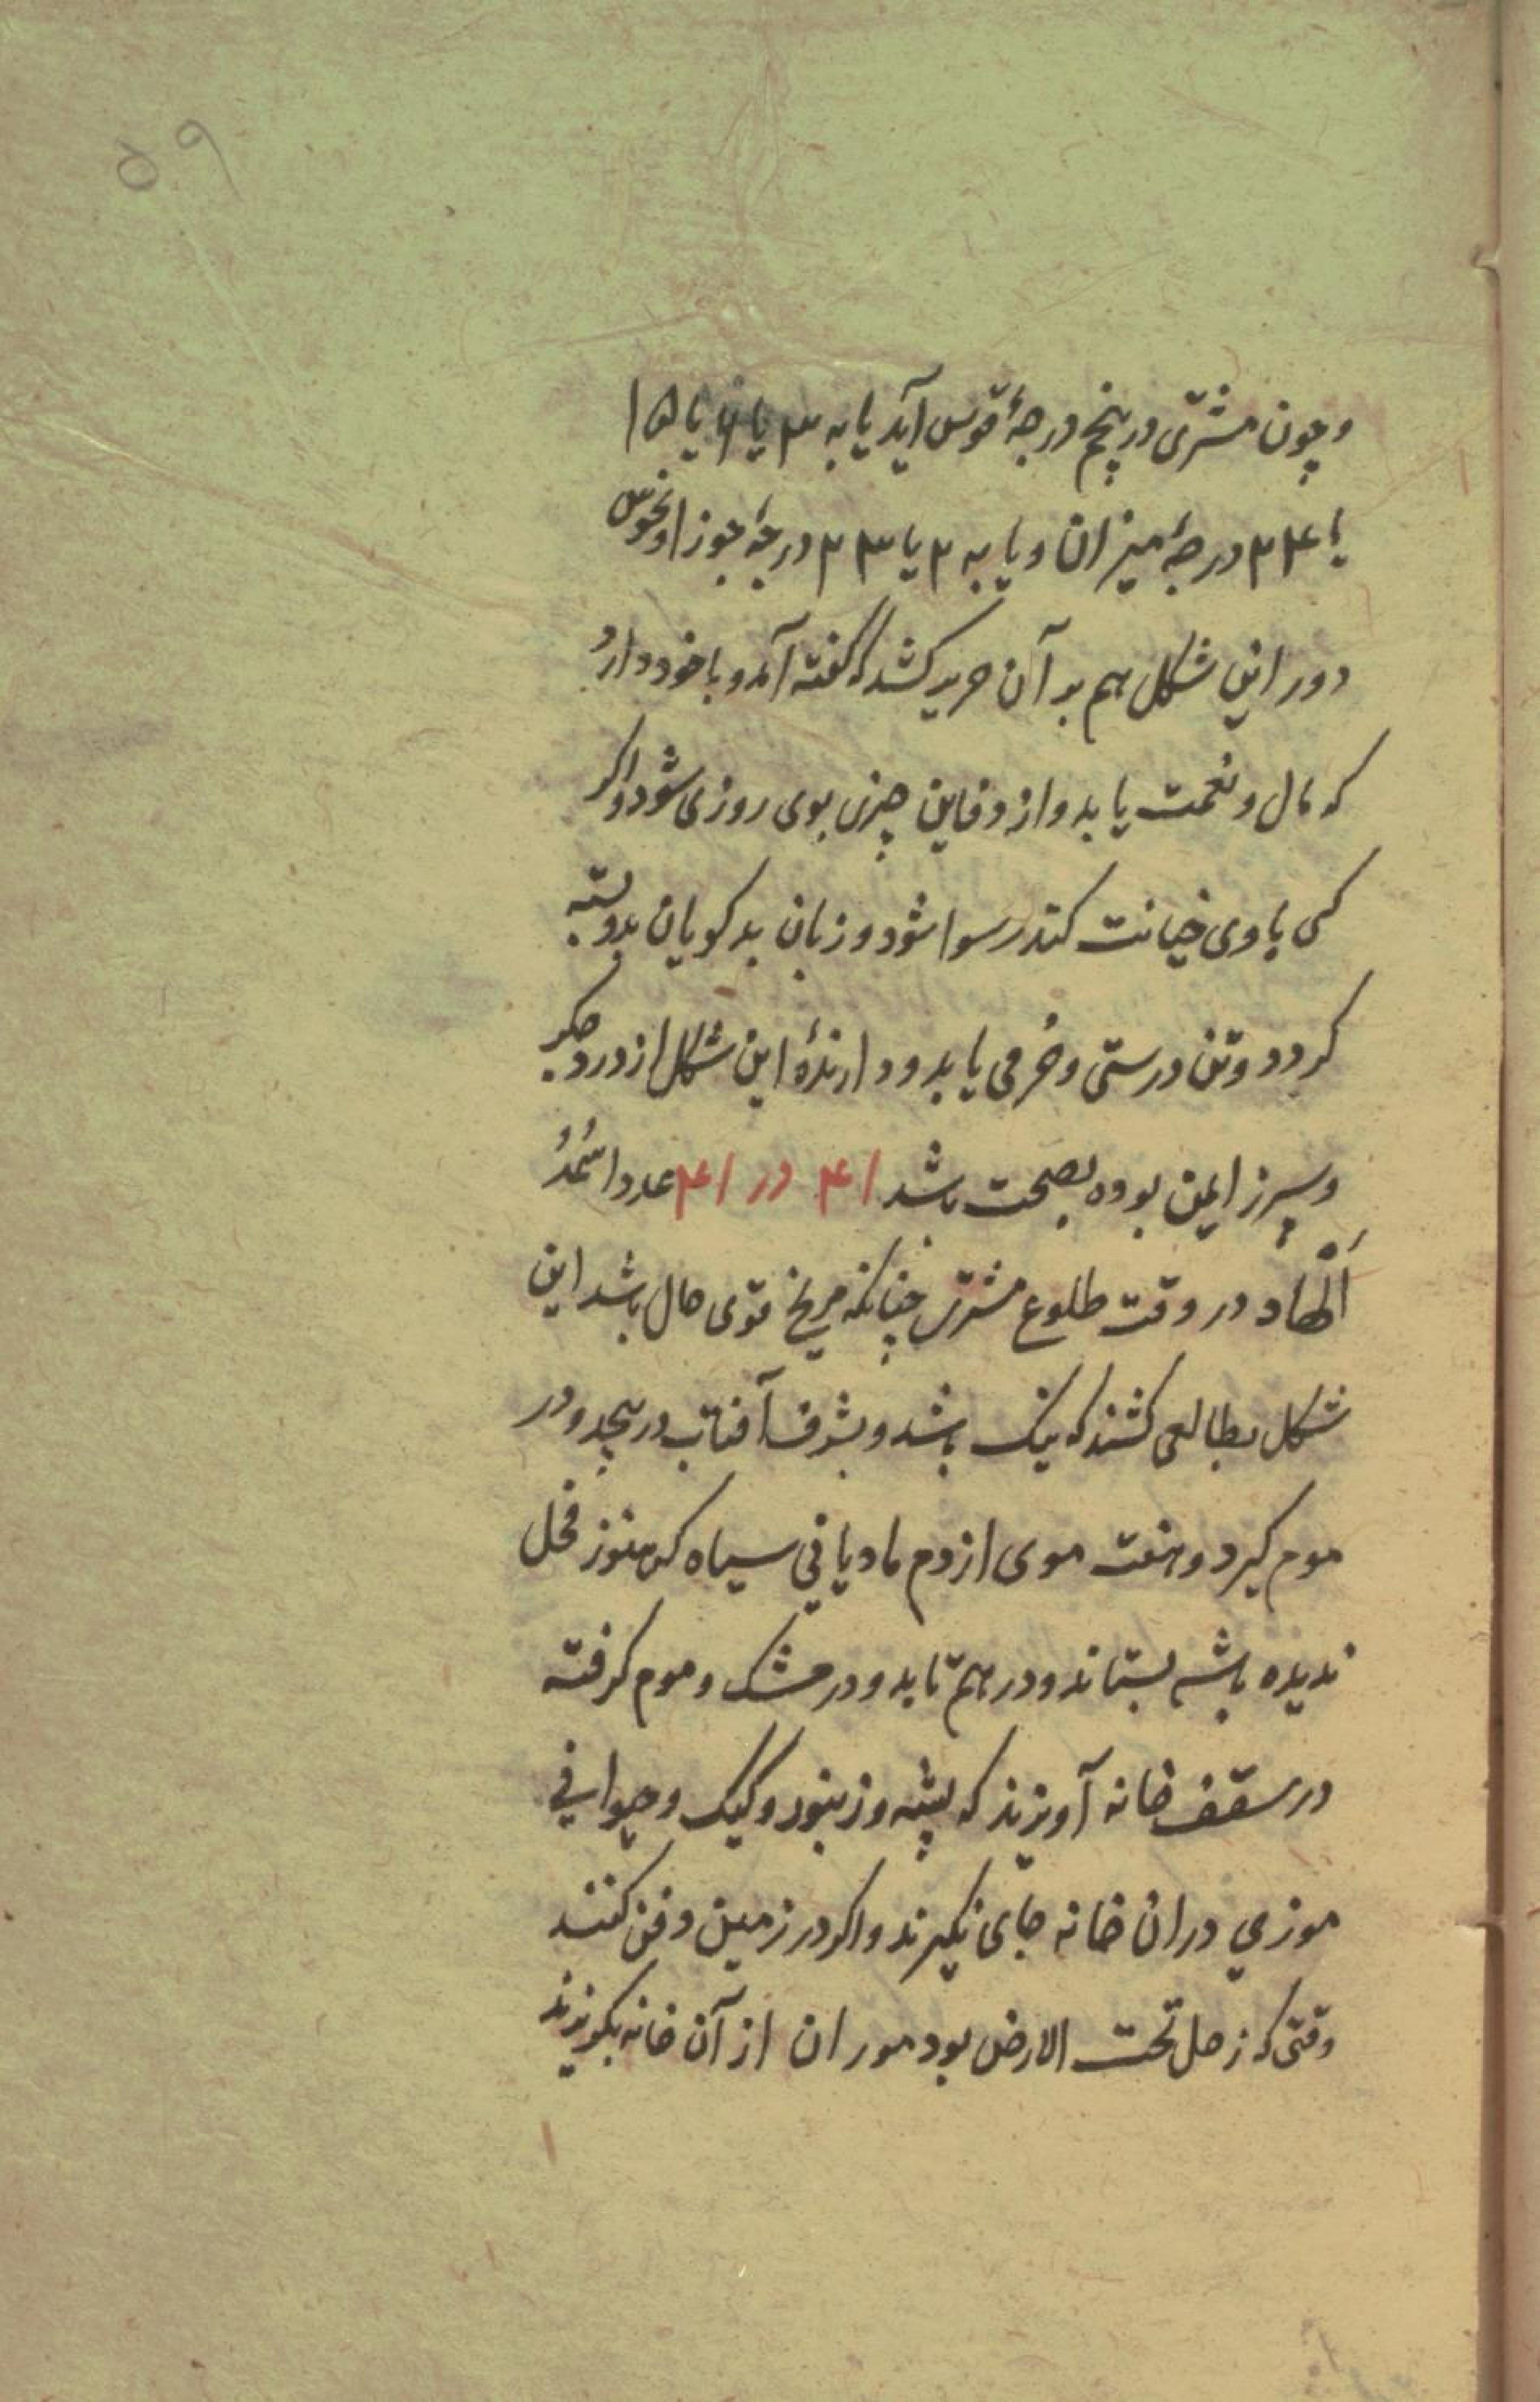 ۵۹
وچون مشتری در پنجم درجهٔ قوس آید یا به ۳ یا ۶ یا ۱۵
یا ۲۴ درجهٔ میزان و یا به ۲ یا ۲۳ درجهٔ جوزا و نحوس
دور این شکل هم بر آن حریر کشد که گفته آمد و با خود دارد
که مال و نعمت یابد و از دفاین چیزی بوی روزی شود و اکر
کسی با وی خیانت کند رسوا شود و زبان بدکویان بدو بسته
کردد و تن درستی و خرمی یابد و دارندهٔ این شکل از درد جکر
و سپرز ایمن بوده بصحت باشد ۴۱ در ۴۱ عدد
در وقت طلوع مشتری چنانکه مریخ قوی حال باشد این
شکل بطالعی کشند که نیک باشد و بشرف آفتاب در پیچد و در
موم کیرد و هفت موی از دم مادیانی سیاه که هنوز فحل
ندیده باشد بستاند و در هم تابد و در مشک و موم کرفته
در سقف خانه آویزند که پشه و زنبور و کیک و حیوانی
موزی دران خانه جای نکیرند و اکر در زمین دفن کنند
وقتی که زحل تحت الارض بود موران از آن خانه بکریزند